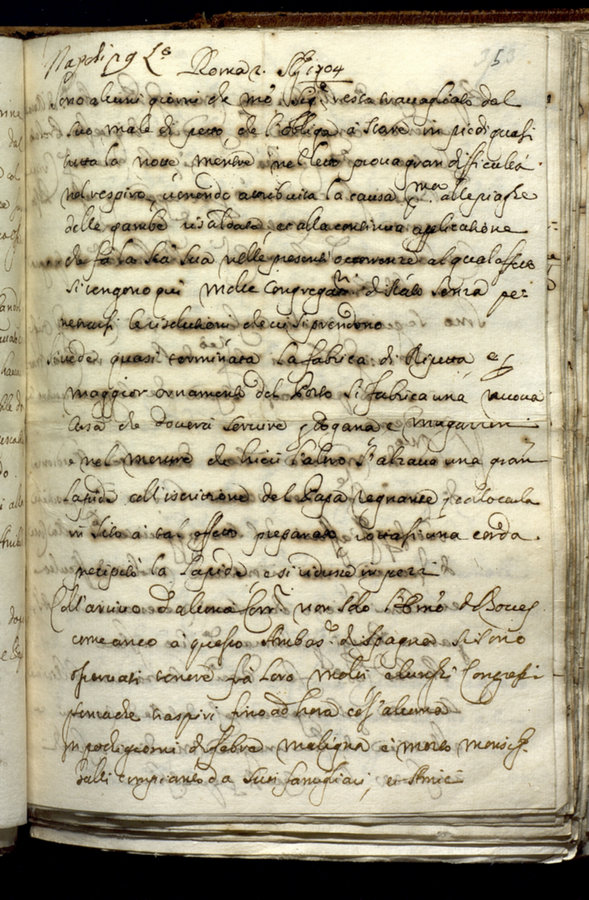 Roma 2. 8bre 1704
Sono alcuni giorni che resta travagliato dal
suo male di petto che l'obliga à stare in piedi quasi
tutta la notte mentre nel letto prova gran difficultà
nel respiro, venendo attribuita la causa alle piaghe
delle gambe et alla continua applicatione
che fà la Stà Sua nelle presenti occorrenze al qual effetto
si tengono qui molte Congregationi di Stato senza pe-
netrarsi le risolutioni che vi si prendono
Si vede quasi terminata la fabrica di Ripetta e p
maggior ornamento del Porto si fabrica una nuova
Casa che doverà servire p Dogana e Magazzeni
nel mentre che hieri l'altro si alzava una gran
lapide coll'iscrittione del Papa Regnante p collocarla
in sito à tal effetto preparato rottasi una corda
la lapide e si ridusse in pezzi
Coll'arrivo d'alcuni non solo
come anco à questo Ambas.re di Spagna si sono
osservati tenere frà loro molti e lunghi Congressi
senza che traspiri fino ad hora cos'alcuna
In pochi giorni di febre maligna è morto
compianto da suoi famigliari, et Amici